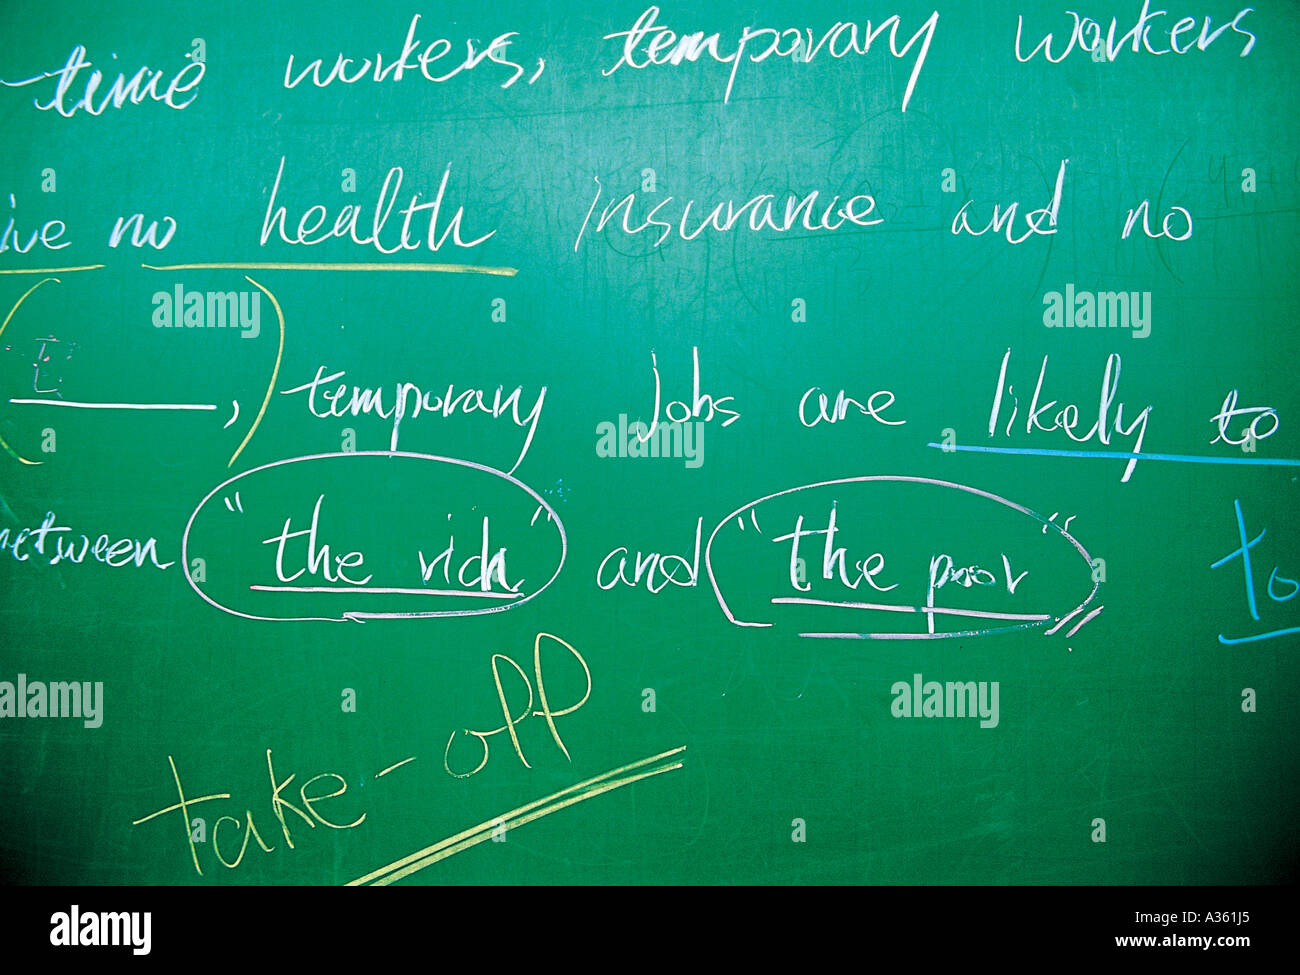 -time workers, temporary workers
ive no health insurance and no
( E ), temporary jobs are likely to
between "the rich" and "the poor" to
take-off
alamy
Image ID: A361J5
www.alamy.com